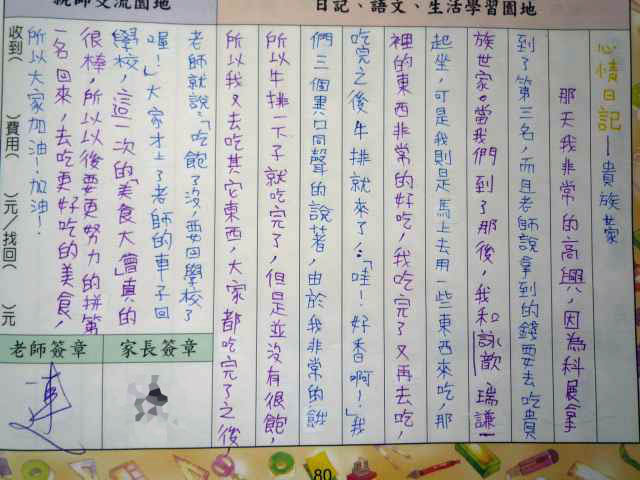 親師交流園地
日記、語文、生活學習園地
心情日記—貴族世家
那天我非常的高興,因為科展拿
到了第三名,而且老師說拿到的錢要去吃貴
族世家。當我們到了那後,我和詠歆、瑞謙一
起坐,可是我則是馬上去用一些東西來吃,那
裡的東西非常的好吃,我吃完了又再去吃,
吃完之後牛排就來了:「哇!好香啊!」我
們三個異口同聲的說著,由於我非常的餓
所以牛排一下子就吃完了,但是並沒有很飽,
所以我又去吃其它東西,大家都吃完了之後,
老師就說:「吃飽了沒,要回學校了
喔!」大家才上了老師的車子回
學校,這一次的「美食大會」真的
很棒,所以以後要更努力的拼第
一名回來,去吃更好吃的美食,
所以大家加油!加油!
收到( )費用( )元/找回( )元
家長簽章
老師簽章
80